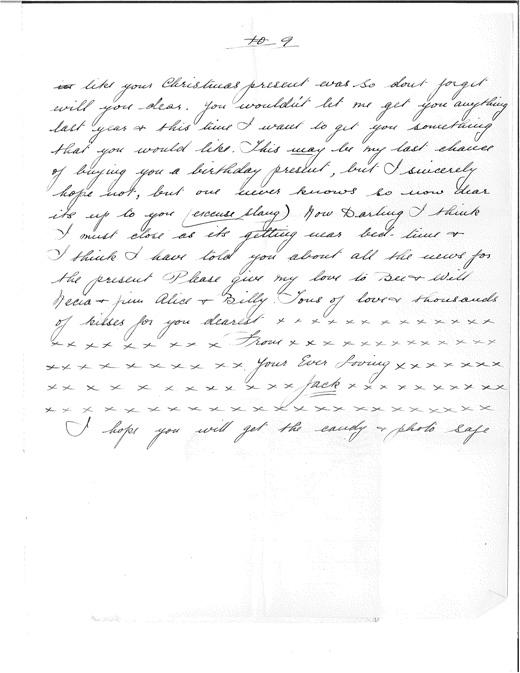 10 9
like your Christmas present was so dont forget
will you dear. You wouldn't let me get you anything
last year & this time I want to get you something
that you would like. This may be my last chance
of buying you a birthday present, but I sincerely
hope not, but one never knows so now dear
its up to you (excuse slang) Now Darling I think
I must close as its getting near bed-time &
I think I have told you about all the news for
the present Please give my love to Bee & Will
Necia & Jim Alice & Billy. Tons of love & thousands
of kisses for you dearest x x x x x x x x x x x x x
x x x x x x x x From x x x x x x x x x x x x x
x x x x x x x x x x x Your Ever Loving x x x x x x x
x x x x x x x x x x x x x x Jack x x x x x x x x x x
x x x x x x x x x x x x x x x x x x x x x x x x x x
I hope you will get the candy & photo safe